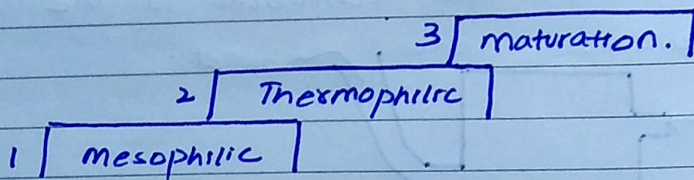 3 maturation.
2 Thermophilic
1 mesophilic